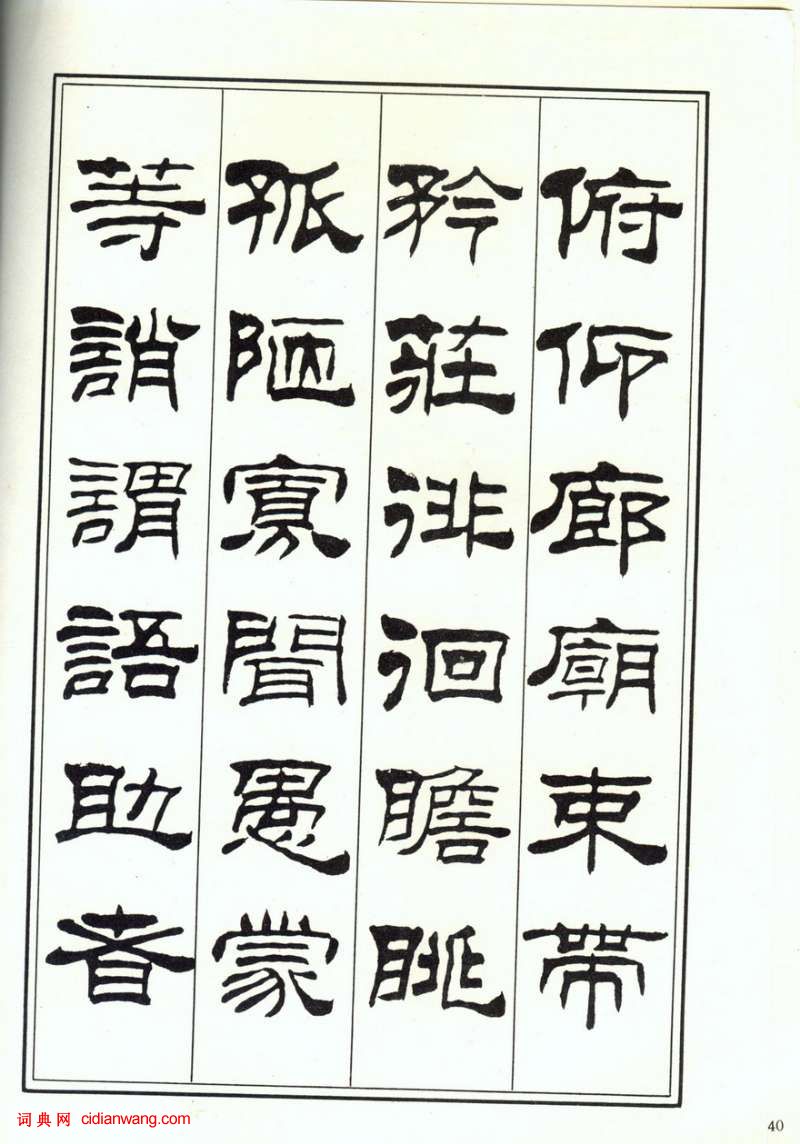 俯仰廊廟束帶
矜莊徘徊瞻眺
孤陋寡聞愚蒙
等誚謂語助者
词典网 cidianwang.com
40